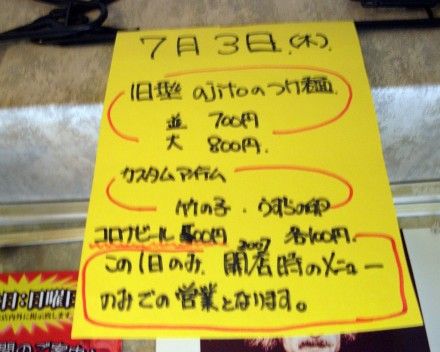 7月3日(木)
旧型 ajitoのつけ麺
並 700円
大 800円
カスタムアイテム
竹の子・うずらの卵
コロナビール 500円 2007 各100円
この1日のみ、開店時のメニュー
のみでの営業となります。
日・日曜日
店内外に掲示致します
間のご案内